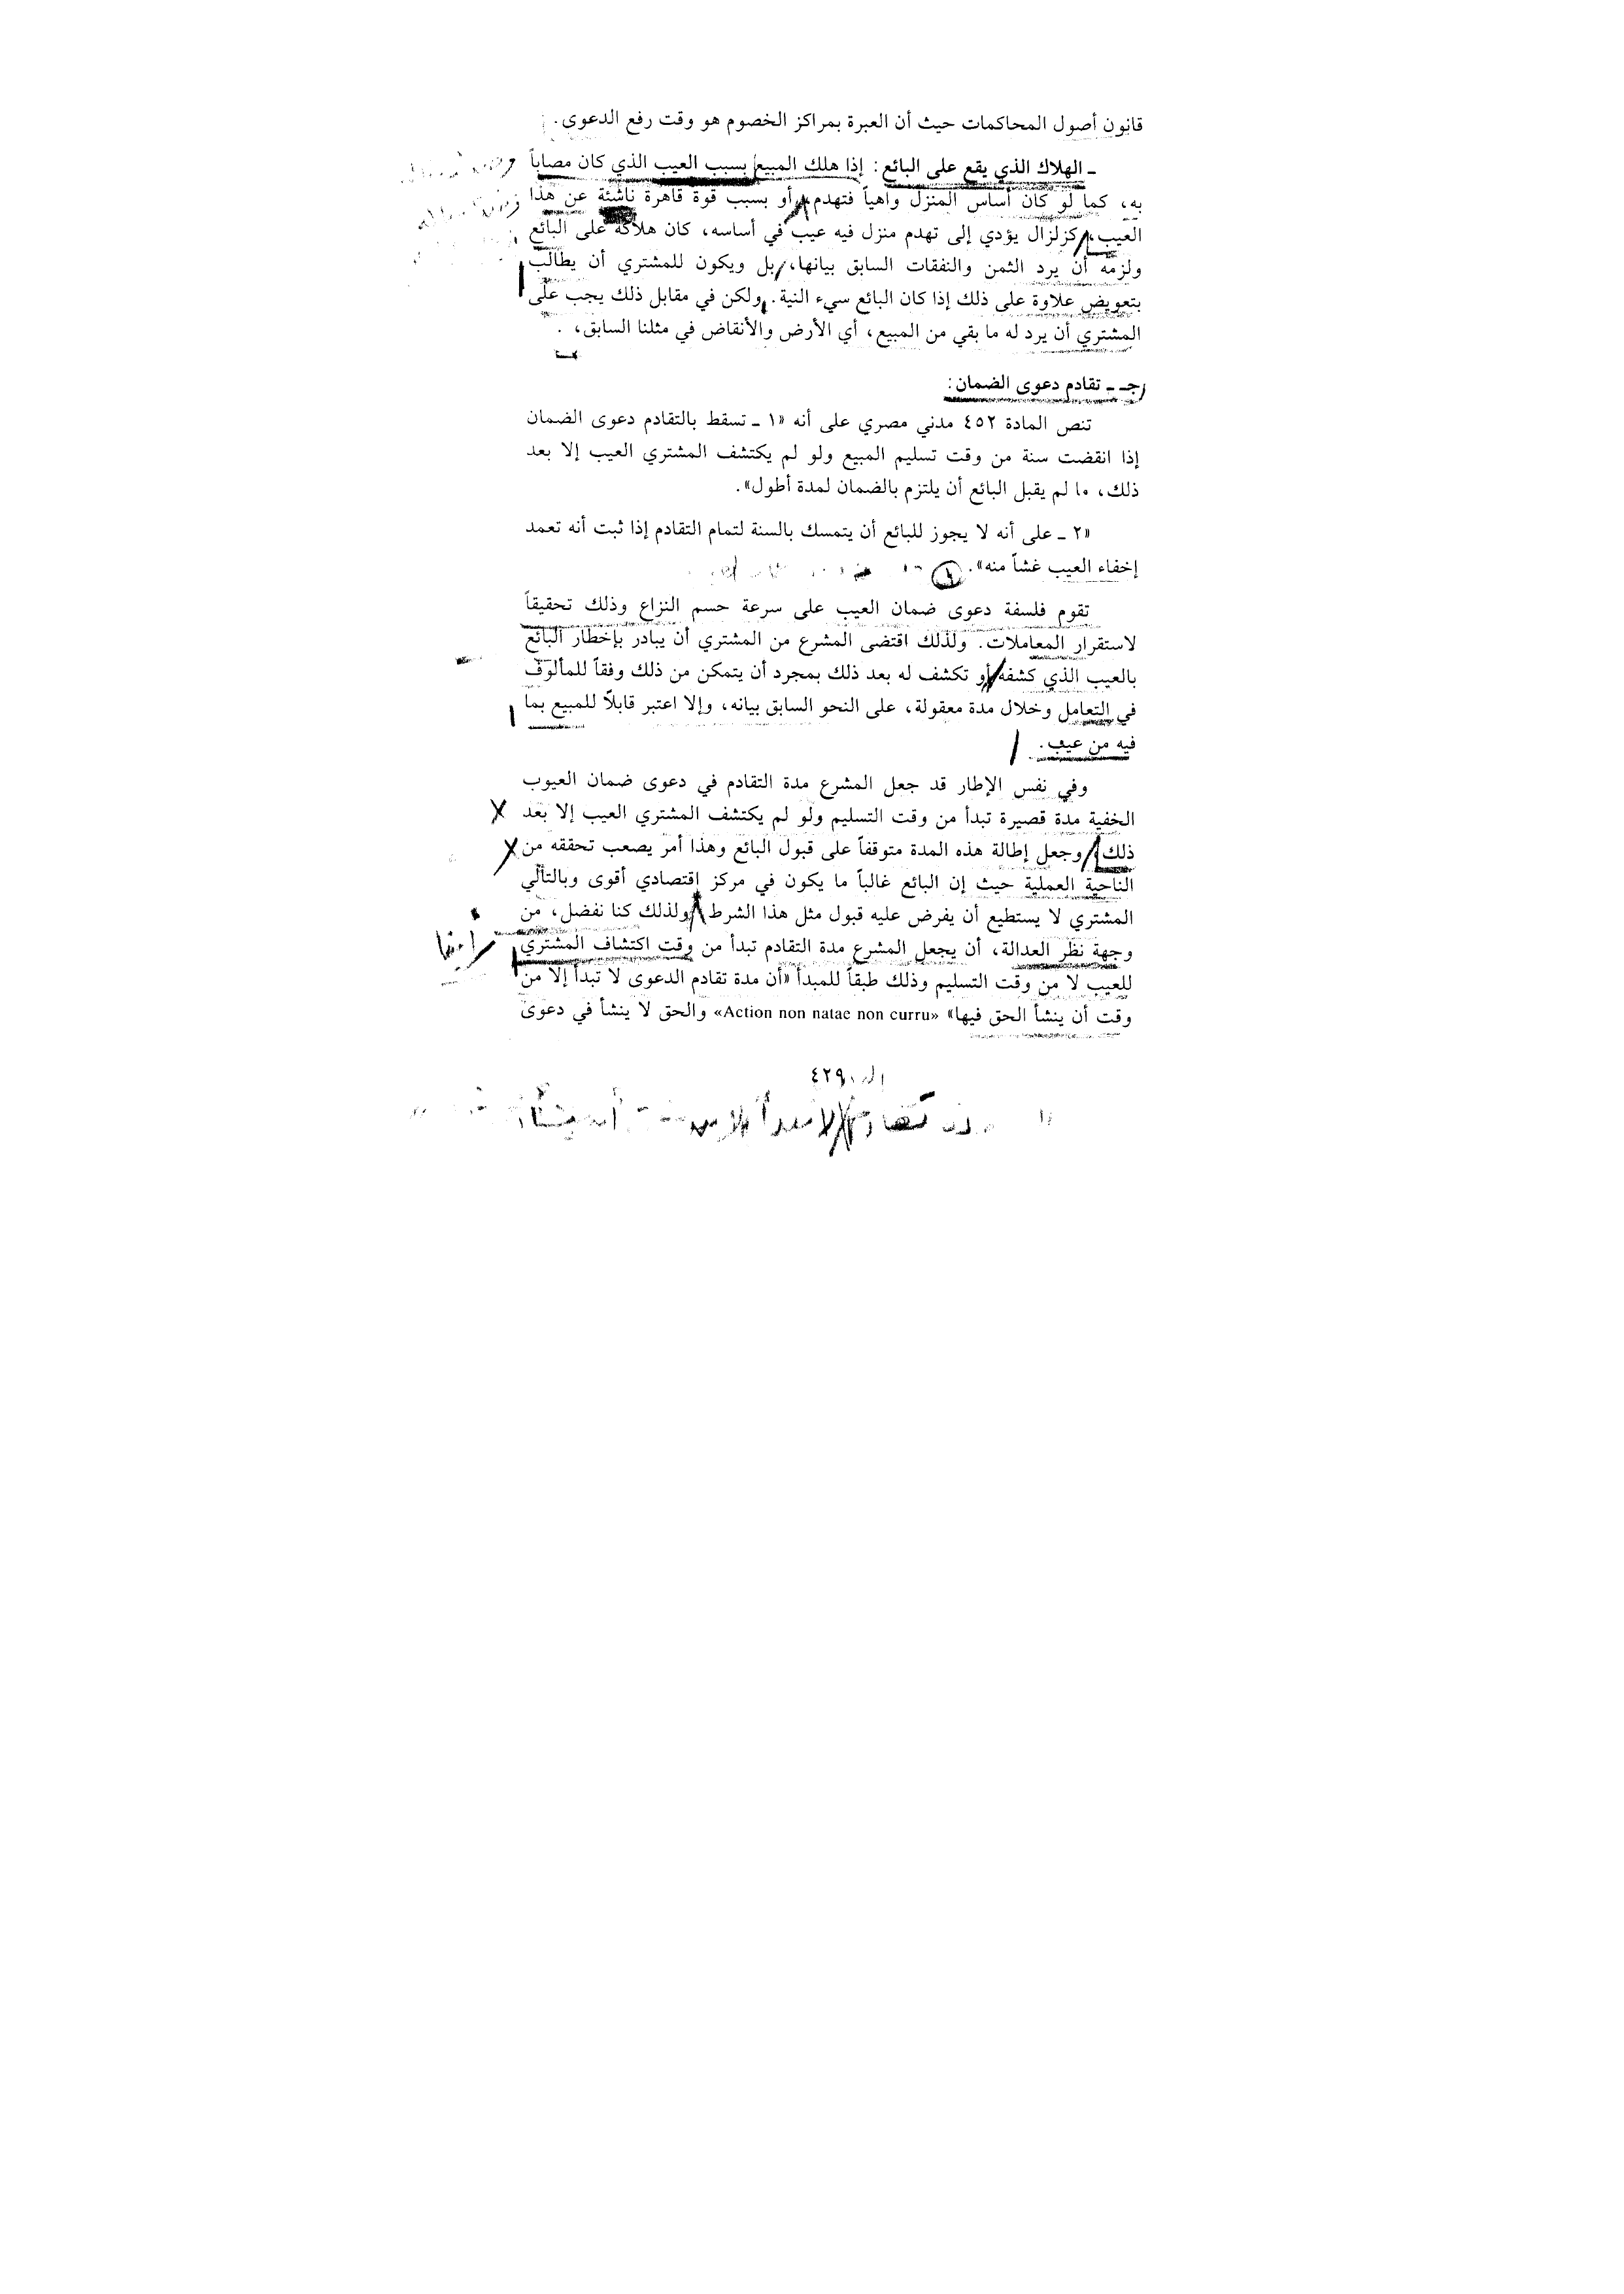 قانون أصول المحاكمات حيث أن العبرة بمراكز الخصوم هو وقت رفع الدعوى.
ـ الهلاك الذي يقع على البائع: إذا هلك المبيع بسبب العيب الذي كان مصاباً
به، كما لو كان أساس المنزل واهياً فتهدم، أو بسبب قوة قاهرة ناشئة عن هذا
العيب، كزلزال يؤدي إلى تهدم منزل فيه عيب في أساسه، كان هلاكه على البائع
ولزمه أن يرد الثمن والنفقات السابق بيانها، بل ويكون للمشتري أن يطالب
بتعويض علاوة على ذلك إذا كان البائع سيء النية. ولكن في مقابل ذلك يجب على
المشتري أن يرد له ما بقي من المبيع، أي الأرض والأنقاض في مثلنا السابق، .
جـ ـ تقادم دعوى الضمان:
تنص المادة ٤٥٢ مدني مصري على أنه «١ ـ تسقط بالتقادم دعوى الضمان
إذا انقضت سنة من وقت تسليم المبيع ولو لم يكتشف المشتري العيب إلا بعد
ذلك، ما لم يقبل البائع أن يلتزم بالضمان لمدة أطول».
«٢ ـ على أنه لا يجوز للبائع أن يتمسك بالسنة لتمام التقادم إذا ثبت أنه تعمد
إخفاء العيب غشاً منه».
تقوم فلسفة دعوى ضمان العيب على سرعة حسم النزاع وذلك تحقيقاً
لاستقرار المعاملات. ولذلك اقتضى المشرع من المشتري أن يبادر بإخطار البائع
بالعيب الذي كشفه أو تكشف له بعد ذلك بمجرد أن يتمكن من ذلك وفقاً للمألوف
في التعامل وخلال مدة معقولة، على النحو السابق بيانه، وإلا اعتبر قابلاً للمبيع بما
فيه من عيب.
وفي نفس الإطار قد جعل المشرع مدة التقادم في دعوى ضمان العيوب
الخفية مدة قصيرة تبدأ من وقت التسليم ولو لم يكتشف المشتري العيب إلا بعد
ذلك، وجعل إطالة هذه المدة متوقفاً على قبول البائع وهذا أمر يصعب تحققه من
الناحية العملية حيث إن البائع غالباً ما يكون في مركز إقتصادي أقوى وبالتالي
المشتري لا يستطيع أن يفرض عليه قبول مثل هذا الشرط. ولذلك كنا نفضل، من
وجهة نظر العدالة، أن يجعل المشرع مدة التقادم تبدأ من وقت اكتشاف المشتري
للعيب لا من وقت التسليم وذلك طبقاً للمبدأ «أن مدة تقادم الدعوى لا تبدأ إلا من
وقت أن ينشأ الحق فيها» «Action non natae non curru» والحق لا ينشأ في دعوى
٤٢٩